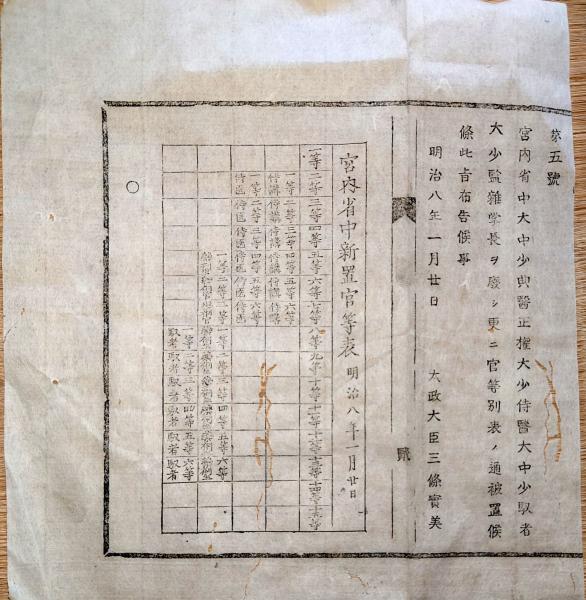 第五號
宮内省中大中少典醫正權大少侍醫大中少馭者
大少監雜掌長ヲ廢シ更ニ官等別表ノ通被置候
條此旨布告候事
明治八年一月廿日
太政大臣三條實美
貳
宮内省中新置官等表 明治八年一月廿日
一等 二等 三等 四等 五等 六等 七等 八等 九等 十等 十一等 十二等 十三等 十四等 十五等
一等侍講 二等侍講 三等侍講 四等侍講 五等侍講 六等侍講
一等侍医 二等侍医 三等侍医 四等侍医 五等侍医 六等侍医
一等馭者 二等馭者 三等馭者 四等馭者 五等馭者 六等馭者